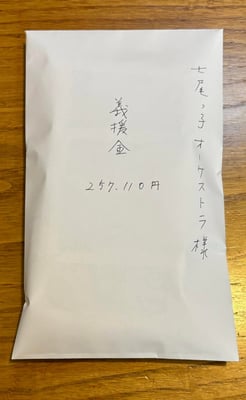 七尾っ子オーケストラ様
義援金
257.110円